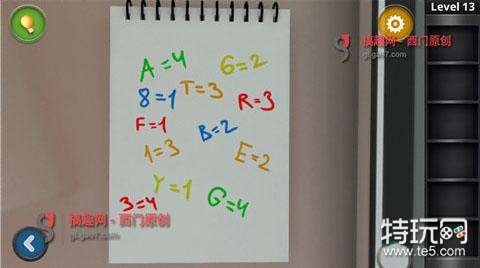 Level 13
搞趣网 - 西门原创
g.gao7.com
A=4
6=2
8=1
T=3
R=3
F=1
B=2
1=3
E=2
Y=1
3=4
G=4
搞趣网 - 西门原创
g.gao7.com
特玩网
www.te5.com